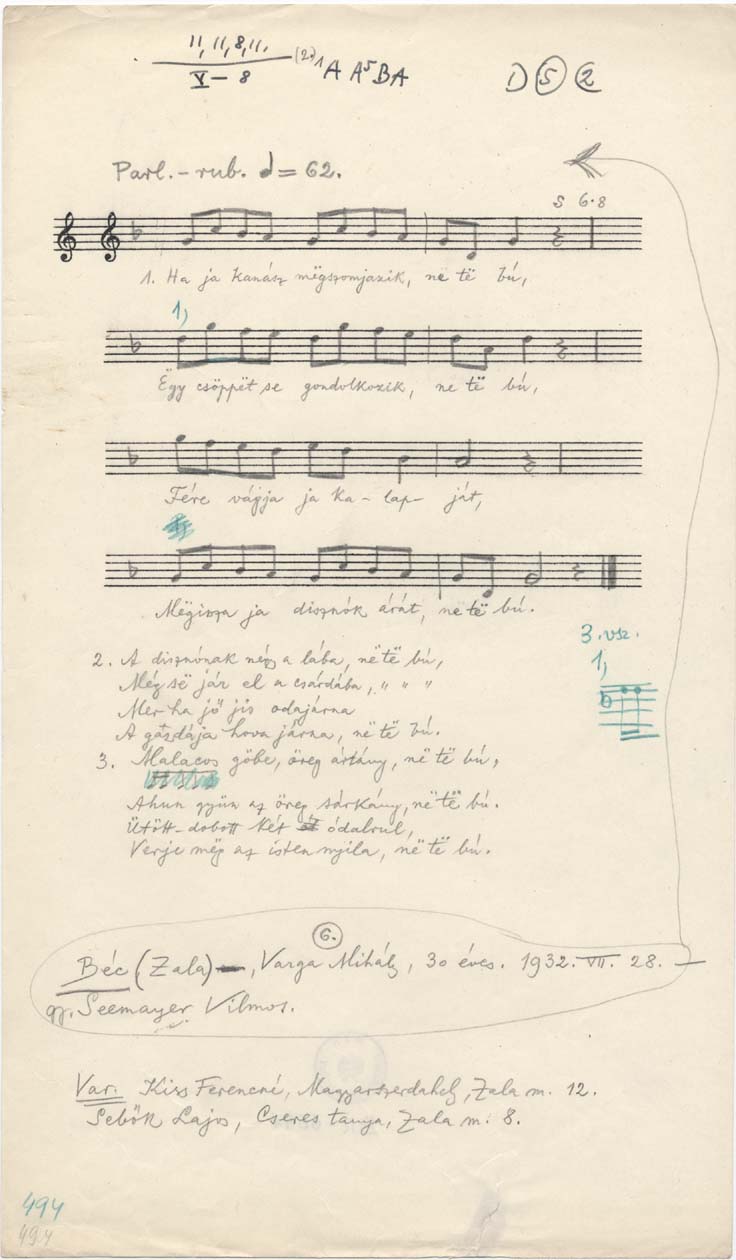 11, 11, 8, 11.
V – 8 (2.) 1 A A⁵ B A
D 5 2
Parl. – rub. = 62.
S 6·8
1. Ha ja kanász mëgszomjazik, ne të bú,
1,
Ëgy csöppët se gondolkozik, ne të bú,
Fére vágja ja ka – lap – ját,
Mëgissza ja disznók árát, ne të bú.
3. vsz.
1,
2. A disznónak négy a lába, në të bú,
Még së jár el a csárdába, " " "
Mer ha jő jis odajárna
A gazdája hova járna, në të bú.
3. Malacos göbe, öreg ártány, në të bú,
Ahun gyün az öreg sárkány, në të bú.
Ütött-dobott két ódalrul,
Verje mëg az isten nyila, në të bú.
6.
Béc (Zala) –, Varga Mihály, 30 éves. 1932. VII. 28. –
gy. Seemayer Vilmos.
Var. Kiss Ferencné, Magyarszerdahely, Zala m. 12.
Sebők Lajos, Cseres tanya, Zala m. 8.
494
494